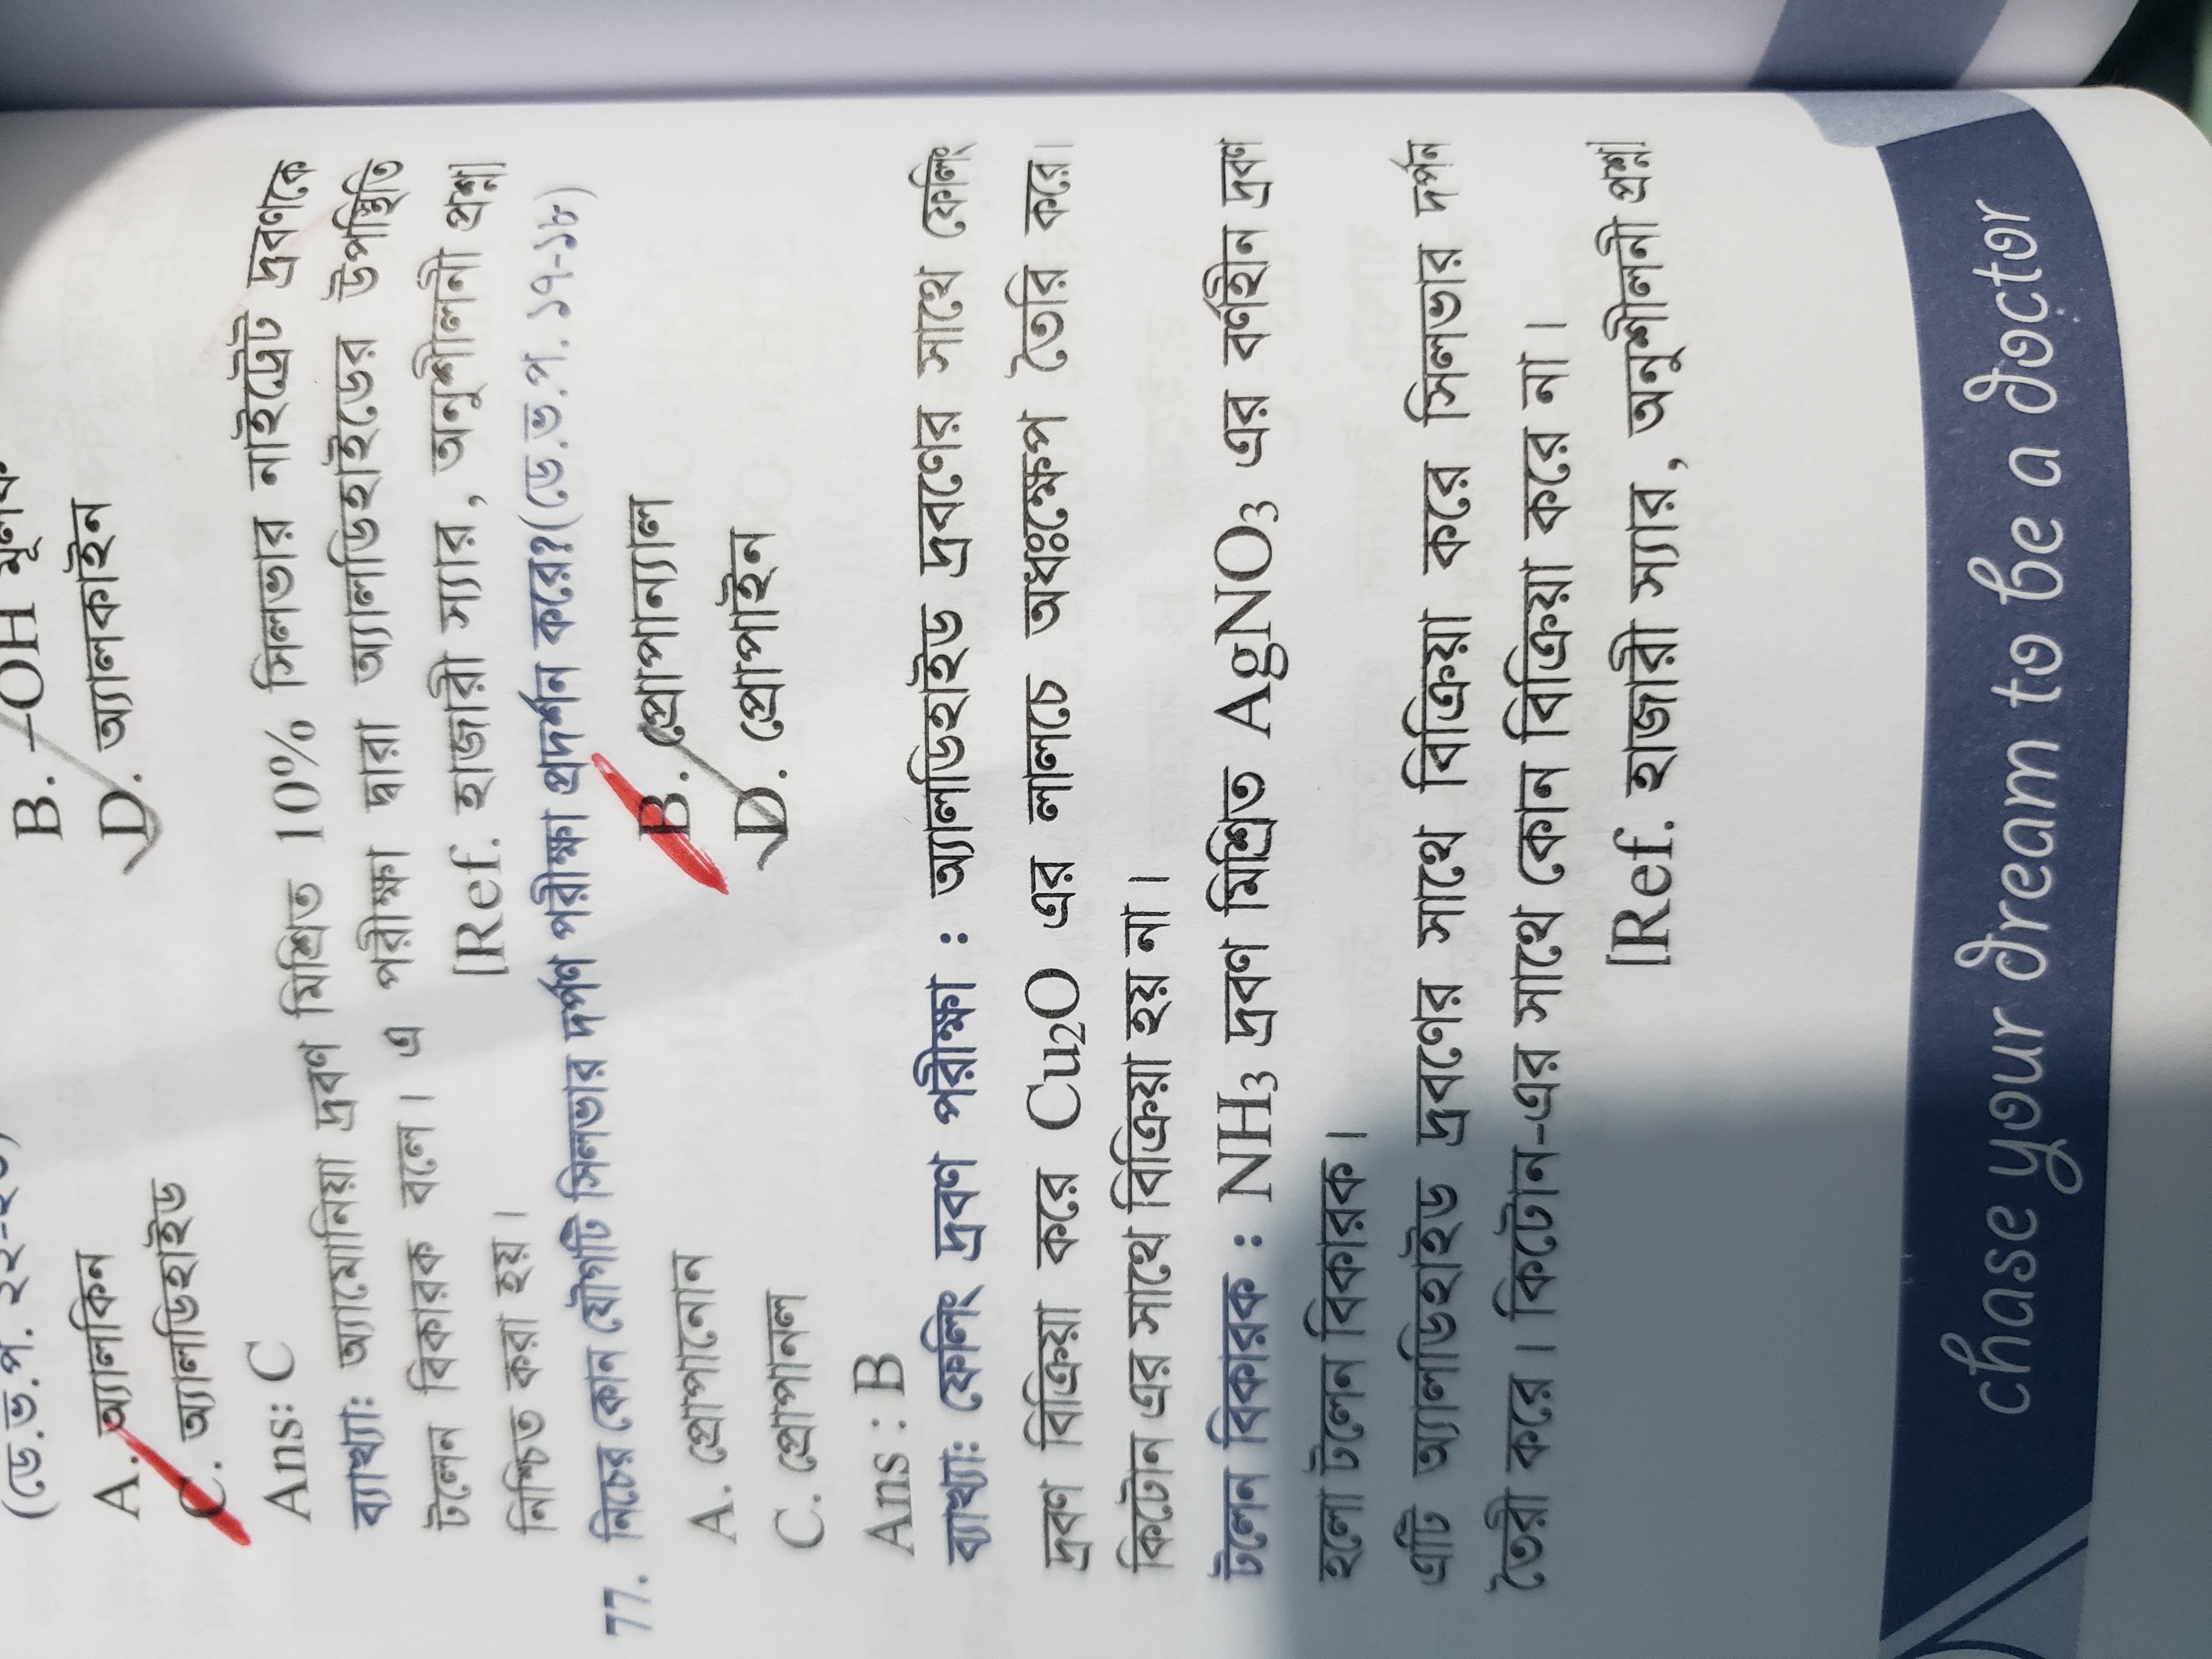 (ডে.ভ.প. ২২-২৩)
B. –OH মূলক
A. অ্যালকিন
D. অ্যালকাইন
C. অ্যালডিহাইড
Ans: C
ব্যাখ্যাঃ অ্যামোনিয়া দ্রবণ মিশ্রিত 10% সিলভার নাইট্রেট দ্রবণকে
টলেন বিকারক বলে। এ পরীক্ষা দ্বারা অ্যালডিহাইডের উপস্থিতি
নিশ্চিত করা হয়।
[Ref. হাজারী স্যার, অনুশীলনী প্রশ্ন]
77. নিচের কোন যৌগটি সিলভার দর্পণ পরীক্ষা প্রদর্শন করে?(ডে.ভ.প. ১৭-১৮)
A. প্রোপানোন
B. প্রোপান্যাল
C. প্রোপানল
D. প্রোপাইন
Ans : B
ব্যাখ্যাঃ ফেলিং দ্রবণ পরীক্ষা : অ্যালডিহাইড দ্রবণের সাথে ফেলিং
দ্রবণ বিক্রিয়া করে Cu₂O এর লালচে অধঃক্ষেপ তৈরি করে।
কিটোন এর সাথে বিক্রিয়া হয় না।
টলেন বিকারক : NH₃ দ্রবণ মিশ্রিত AgNO₃ এর বর্ণহীন দ্রবণ
হলো টলেন বিকারক।
এটি অ্যালডিহাইড দ্রবণের সাথে বিক্রিয়া করে সিলভার দর্পন
তৈরী করে। কিটোন-এর সাথে কোন বিক্রিয়া করে না।
[Ref. হাজারী স্যার, অনুশীলনী প্রশ্ন]
chase your dream to be a doctor